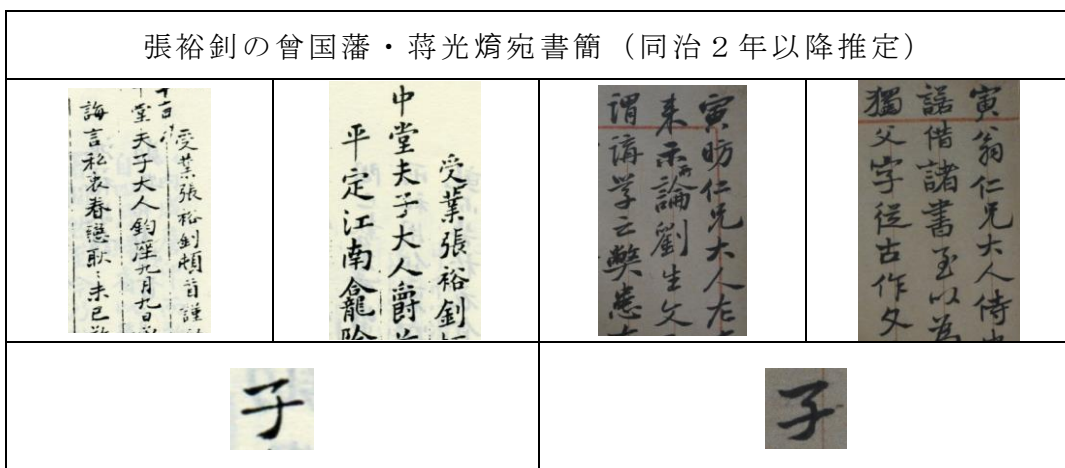 張裕釗の曾国藩・蒋光焴宛書簡（同治２年以降推定）
受業張裕釗頓首謹
堂夫子大人鈞座九月九日
誨言私衷眷戀耿〻未已
受業張裕釗
中堂夫子大人爵
平定江南龕
寅昉仁兄大人左
来示論劉生文
謂講学之獘
寅翁仁兄大人侍
諾借諸書至以為
獨父字從古作
子
子